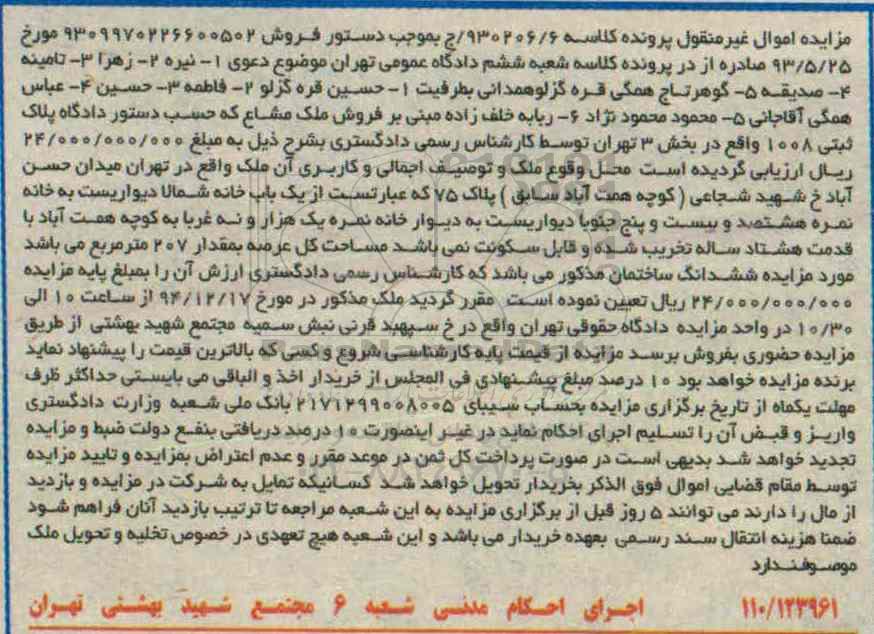 مزایده اموال غیرمنقول پرونده کلاسه ۹۳۰۲۰۶/۶/ج بموجب دستور فروش ۹۳۰۹۹۷۰۲۲۶۶۰۰۵۰۲ مورخ
۹۳/۵/۲۵ صادره از در پرونده کلاسه شعبه ششم دادگاه عمومی تهران موضوع دعوی ۱- نیره ۲- زهرا ۳- تامینه
۴- صدیقه ۵- گوهرتاج همگی قره گزلوهمدانی بطرفیت ۱- حسین قره گزلو ۲- فاطمه ۳- حسین ۴- عباس
همگی آقاجانی ۵- محمود محمود نژاد ۶- ربابه خلف زاده مبنی بر فروش ملک مشاع که حسب دستور دادگاه پلاک
ثبتی ۱۰۰۸ واقع در بخش ۳ تهران توسط کارشناس رسمی دادگستری بشرح ذیل به مبلغ ۲۴/۰۰۰/۰۰۰/۰۰۰
ریال ارزیابی گردیده است محل وقوع ملک و توصیف اجمالی و کاربری آن ملک واقع در تهران میدان حسن
آباد خ شهید شجاعی ( کوچه همت آباد سابق ) پلاک ۷۵ که عبارتست از یک باب خانه شمالا دیواریست به خانه
نمره هشتصد و بیست و پنج جنوبا دیواریست به دیوار خانه نمره یک هزار و نه غربا به کوچه همت آباد با
قدمت هشتاد ساله تخریب شده و قابل سکونت نمی باشد مساحت کل عرصه بمقدار ۲۰۷ مترمربع می باشد
مورد مزایده ششدانگ ساختمان مذکور می باشد که کارشناس رسمی دادگستری ارزش آن را بمبلغ پایه مزایده
۲۴/۰۰۰/۰۰۰/۰۰۰ ریال تعیین نموده است مقرر گردید ملک مذکور در مورخ ۹۴/۱۲/۱۷ از ساعت ۱۰ الی
۱۰/۳۰ در واحد مزایده دادگاه حقوقی تهران واقع در خ سپهبد قرنی نبش سمیه مجتمع شهید بهشتی از طریق
مزایده حضوری بفروش برسد مزایده از قیمت پایه کارشناسی شروع و کسی که بالاترین قیمت را پیشنهاد نماید
برنده مزایده خواهد بود ۱۰ درصد مبلغ پیشنهادی فی المجلس از خریدار اخذ و الباقی می بایستی حداکثر ظرف
مهلت یکماه از تاریخ برگزاری مزایده بحساب سیبای ۲۱۷۱۲۹۹۰۰۸۰۰۵ بانک ملی شعبه وزارت دادگستری
واریز و قبض آن را تسلیم اجرای احکام نماید در غیر اینصورت ۱۰ درصد دریافتی بنفع دولت ضبط و مزایده
تجدید خواهد شد بدیهی است در صورت پرداخت کل ثمن در موعد مقرر و عدم اعتراض بمزایده و تایید مزایده
توسط مقام قضایی اموال فوق الذکر بخریدار تحویل خواهد شد کسانیکه تمایل به شرکت در مزایده و بازدید
از مال را دارند می توانند ۵ روز قبل از برگزاری مزایده به این شعبه مراجعه تا ترتیب بازدید آنان فراهم شود
ضمنا هزینه انتقال سند رسمی بعهده خریدار می باشد و این شعبه هیچ تعهدی در خصوص تخلیه و تحویل ملک
موصوفندارد
۱۱۰/۱۲۳۹۶۱ اجرای احکام مدنی شعبه ۶ مجتمع شهید بهشتی تهران